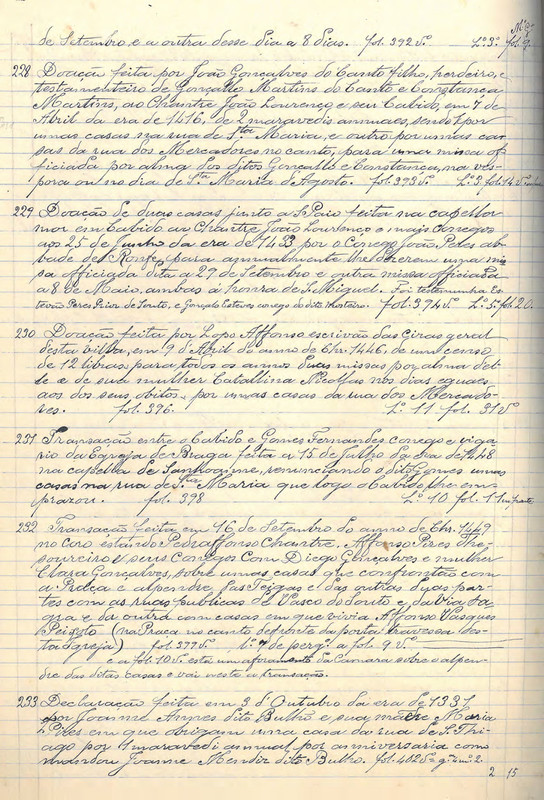 de Setembro, e a outra desse dia a 8 dias. fol. 392 vº. Lº 3º fol. 9.
228 Doação feita por João Gonçalves do Canto filho, herdeiro, e
testamenteiro de Gonçallo Martins do Canto e Constança
Martins, ao Chantre João Lourenço e seu Cabido, em 7 de
Abril da era de 1416, de 2 maravedis annuaes, sendo 1 por
umas casas na rua de Sta Maria, e outro por umas ca-
sas da rua dos Mercadores no canto, para uma missa of-
ficiada por alma dos ditos Gonçallo e Constança, na ves-
pora ou no dia de Sta Maria d'Agosto. fol. 393 vº. Lº 3. fol. 14 vº
229 Doação de duas casas junto a S. Paio feita na capella
mór em Cabido ao Chantre João Lourenço e mais conegos
aos 25 de Junho da era de 1433 por o Conego João Pires ab-
bade de Ronfe, para annualmente lhe dizerem uma mis-
sa officiada dita a 29 de Setembro e outra missa officiada
a 8 de Maio, ambas á honra de S. Miguel. Foi testemunha Es-
tevão Peres Prior de Souto, e Gonçalo Esteves conego do dito Mosteiro. fol. 394 vº. Lº 3º fol. 20.
230 Doação feita por Lopo Affonso escrivão das Ciras geral
desta villa, em 9 d'Abril do anno de Chr. 1446, de um censo
de 12 libras, para todos os annos duas missas por alma del-
le e de sua mulher Catallina Nicollas nos dias eguaes
aos dos seus obitos, por umas casas da rua dos Mercado-
res. fol. 396. Lº 11 fol. 31 vº
231 Transação entre o Cabido e Gomes Fernandes conego e viga-
rio da Egreja de Braga feita a 15 de Julho da era de 1448
na capella de Sanhoanne, renunciando o dito Gomes umas
casas na rua de Sta Maria que logo o Cabido lhe em-
prazou. fol. 398 Lº 10 fol. 11
232 Transação feita em 16 de Setembro do anno de Chr. 1449
no coro, estando Pedraffonso Chantre, Affonso Pires The-
soureiro e seus Conegos com Diego Gonçalves e mulher
Clara Gonçalves, sobre umas casas que confrontão com
a Praça e alpendre das Teigas e das outras duas par-
tes com as ruas publicas de Vasco do Souto, e da
e da outra com casas em que vivia Affonso Vasques
Peixoto (na Praça no canto defronte da porta travessa des-
ta Egreja) fol. 399 vº. Lº 4 de perg.º a fol. 9 vº.
e a fol. 10 vº está um aforamento da Camara sobre o alpen-
dre das ditas casas e vai nesta a transação.
233 Declaração feita em 3 d'Outubro da era de 1331
por Joanne Annes dito Bulho e sua madre Maria
Pires em que obrigam uma casa da rua de S. Thi-
ago por 1 maravedi annual, por anniversario como
mandou Joanne Mendiz dito Bulho. fol. 402 vº
2 15